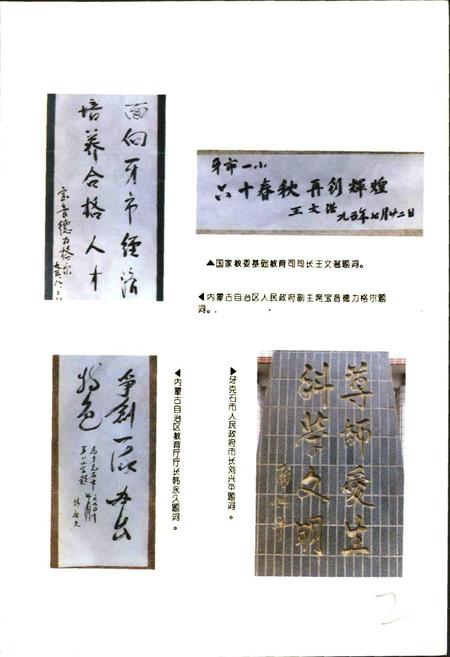 面向牙市经济
培养合格人才
宝音德力格尔
牙市一小
六十春秋 再创辉煌
王文湛
九五年七月廿二日
▲国家教委基础教育司司长王文湛题词。
◀内蒙古自治区人民政府副主席宝音德力格尔题
词。
争创一流 办出
特色
韩永久
◀内蒙古自治区教育厅厅长韩永久题词。
▶牙克石市人民政府市长刘兴平题词。
尊师爱生
科学文明
2